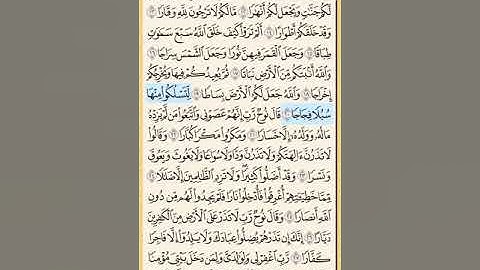 لَّكُمْ جَنَّٰتٍ وَيَجْعَل لَّكُمْ أَنْهَٰرًا ۝ مَّا لَكُمْ لَا تَرْجُونَ لِلَّهِ وَقَارًا ۝
وَقَدْ خَلَقَكُمْ أَطْوَارًا ۝ أَلَمْ تَرَوْا۟ كَيْفَ خَلَقَ ٱللَّهُ سَبْعَ سَمَٰوَٰتٍ
طِبَاقًا ۝ وَجَعَلَ ٱلْقَمَرَ فِيهِنَّ نُورًا وَجَعَلَ ٱلشَّمْسَ سِرَاجًا ۝
وَٱللَّهُ أَنۢبَتَكُم مِّنَ ٱلْأَرْضِ نَبَاتًا ۝ ثُمَّ يُعِيدُكُمْ فِيهَا وَيُخْرِجُكُمْ
إِخْرَاجًا ۝ وَٱللَّهُ جَعَلَ لَكُمُ ٱلْأَرْضَ بِسَاطًا ۝ لِّتَسْلُكُوا۟ مِنْهَا
سُبُلًا فِجَاجًا ۝ قَالَ نُوحٌ رَّبِّ إِنَّهُمْ عَصَوْنِى وَٱتَّبَعُوا۟ مَن لَّمْ يَزِدْهُ
مَالُهُۥ وَوَلَدُهُۥٓ إِلَّا خَسَارًا ۝ وَمَكَرُوا۟ مَكْرًا كُبَّارًا ۝ وَقَالُوا۟
لَا تَذَرُنَّ ءَالِهَتَكُمْ وَلَا تَذَرُنَّ وَدًّا وَلَا سُوَاعًا وَلَا يَغُوثَ وَيَعُوقَ
وَنَسْرًا ۝ وَقَدْ أَضَلُّوا۟ كَثِيرًا وَلَا تَزِدِ ٱلظَّٰلِمِينَ إِلَّا ضَلَٰلًا ۝
مِّمَّا خَطِيٓـَٰٔتِهِمْ أُغْرِقُوا۟ فَأُدْخِلُوا۟ نَارًا فَلَمْ يَجِدُوا۟ لَهُم مِّن دُونِ
ٱللَّهِ أَنصَارًا ۝ وَقَالَ نُوحٌ رَّبِّ لَا تَذَرْ عَلَى ٱلْأَرْضِ مِنَ ٱلْكَٰفِرِينَ
دَيَّارًا ۝ إِنَّكَ إِن تَذَرْهُمْ يُضِلُّوا۟ عِبَادَكَ وَلَا يَلِدُوٓا۟ إِلَّا فَاجِرًا
كَفَّارًا ۝ رَّبِّ ٱغْفِرْ لِى وَلِوَٰلِدَىَّ وَلِمَن دَخَلَ بَيْتِىَ مُؤْمِنًا